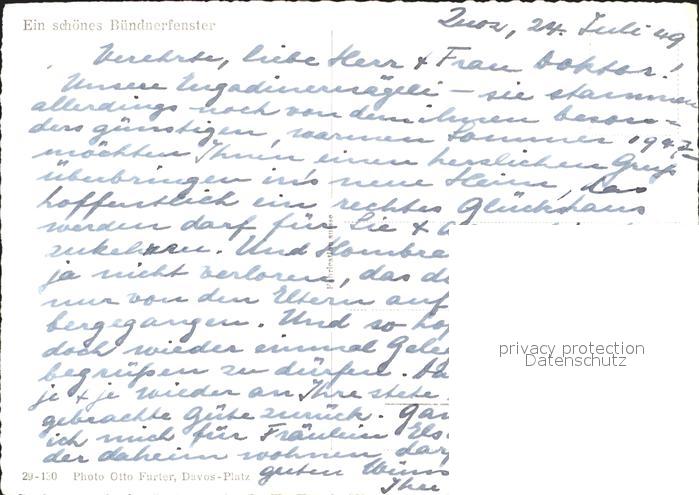 Ein schönes Bündnerfenster
Zuoz, 24. Juli 49
Verehrte, liebe Herr & Frau Doktor!
Unsere Engadinernägeli – sie stammen
allerdings noch von dem ihnen beson-
ders günstigen, warmen Sommer 1947 –
möchten Ihnen einen herzlichen Gruß
überbringen in's neue Heim, das
hoffentlich ein rechtes Glückshaus
werden darf für Sie &
zukehren. Und
ja nicht verloren, das
nur von den Eltern auf
bergegangen. Und so
doch wieder einmal
begrüßen zu dürfen.
je & je wieder an Ihre stete
gebrachte Güte zurück.
ich mich für Fräulein
der daheim wohnen
guten
Ihre
Fabrication suisse
privacy protection
Datenschutz
29-130 Photo Otto Furter, Davos-Platz